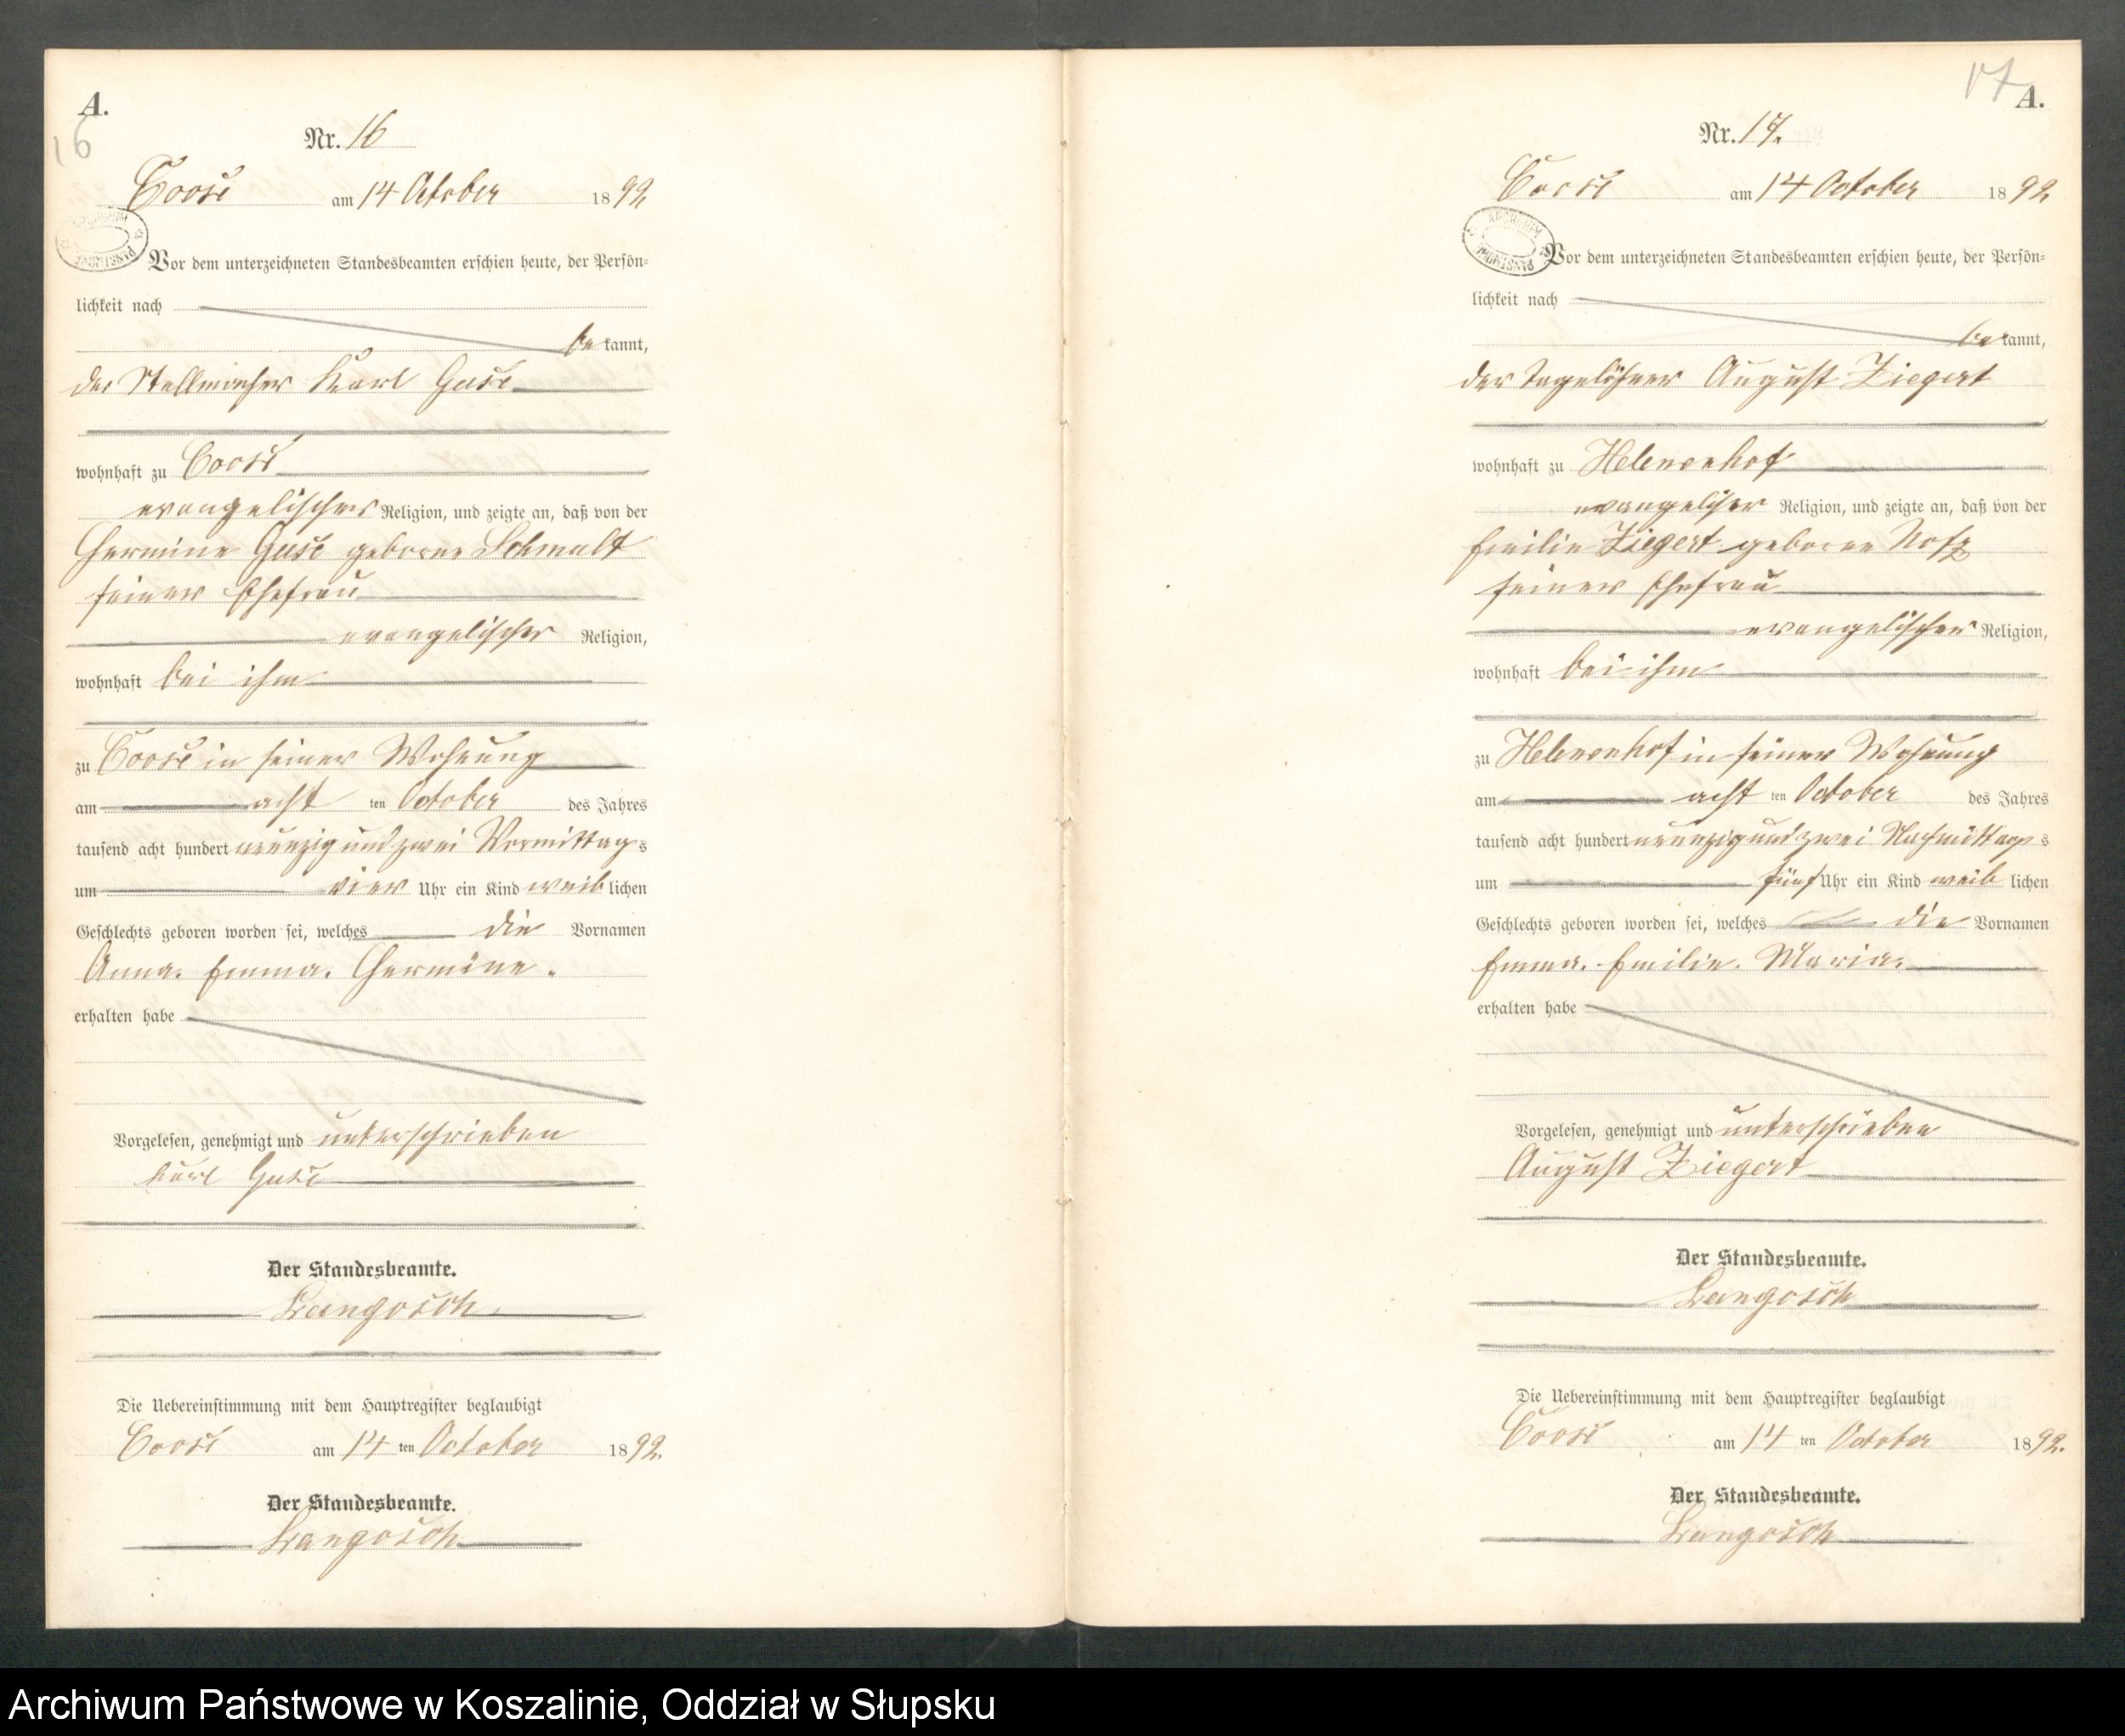 A.
16
Nr. 16
Coose am 14 October 1892
ARCHIWUM PAŃSTWOWE
Vor dem unterzeichneten Standesbeamten erschien heute, der Persön-
lichkeit nach
be kannt,
der Stellmacher Karl Guse
wohnhaft zu Coose
evangelischer Religion, und zeigte an, daß von der
Hermine Guse geborne Schmalt
seiner Ehefrau
evangelischer Religion,
wohnhaft bei ihm
zu Coose in seiner Wohnung
am acht ten October des Jahres
tausend acht hundert neunzig und zwei Vormittag s
um vier Uhr ein Kind weib lichen
Geschlechts geboren worden sei, welches die Vornamen
Anna. Emma. Hermine.
erhalten habe
Vorgelesen, genehmigt und unterschrieben
Karl Guse
Der Standesbeamte.
Langosch
Die Uebereinstimmung mit dem Hauptregister beglaubigt
Coose am 14 ten October 1892.
Der Standesbeamte.
Langosch
17
A.
Nr. 17.
Coose am 14 October 1892
ARCHIWUM PAŃSTWOWE
Vor dem unterzeichneten Standesbeamten erschien heute, der Persön-
lichkeit nach
be kannt,
der Tagelöhner August Ziegert
wohnhaft zu Helenenhof
evangelischer Religion, und zeigte an, daß von der
Emilie Ziegert geborne
seiner Ehefrau
evangelischer Religion,
wohnhaft bei ihm
zu Helenenhof in seiner Wohnung
am acht ten October des Jahres
tausend acht hundert neunzig und zwei Nachmittag s
um fünf Uhr ein Kind weib lichen
Geschlechts geboren worden sei, welches die Vornamen
Emma. Emilie. Maria.
erhalten habe
Vorgelesen, genehmigt und unterschrieben
August Ziegert
Der Standesbeamte.
Langosch
Die Uebereinstimmung mit dem Hauptregister beglaubigt
Coose am 14 ten October 1892.
Der Standesbeamte.
Langosch
Archiwum Państwowe w Koszalinie, Oddział w Słupsku